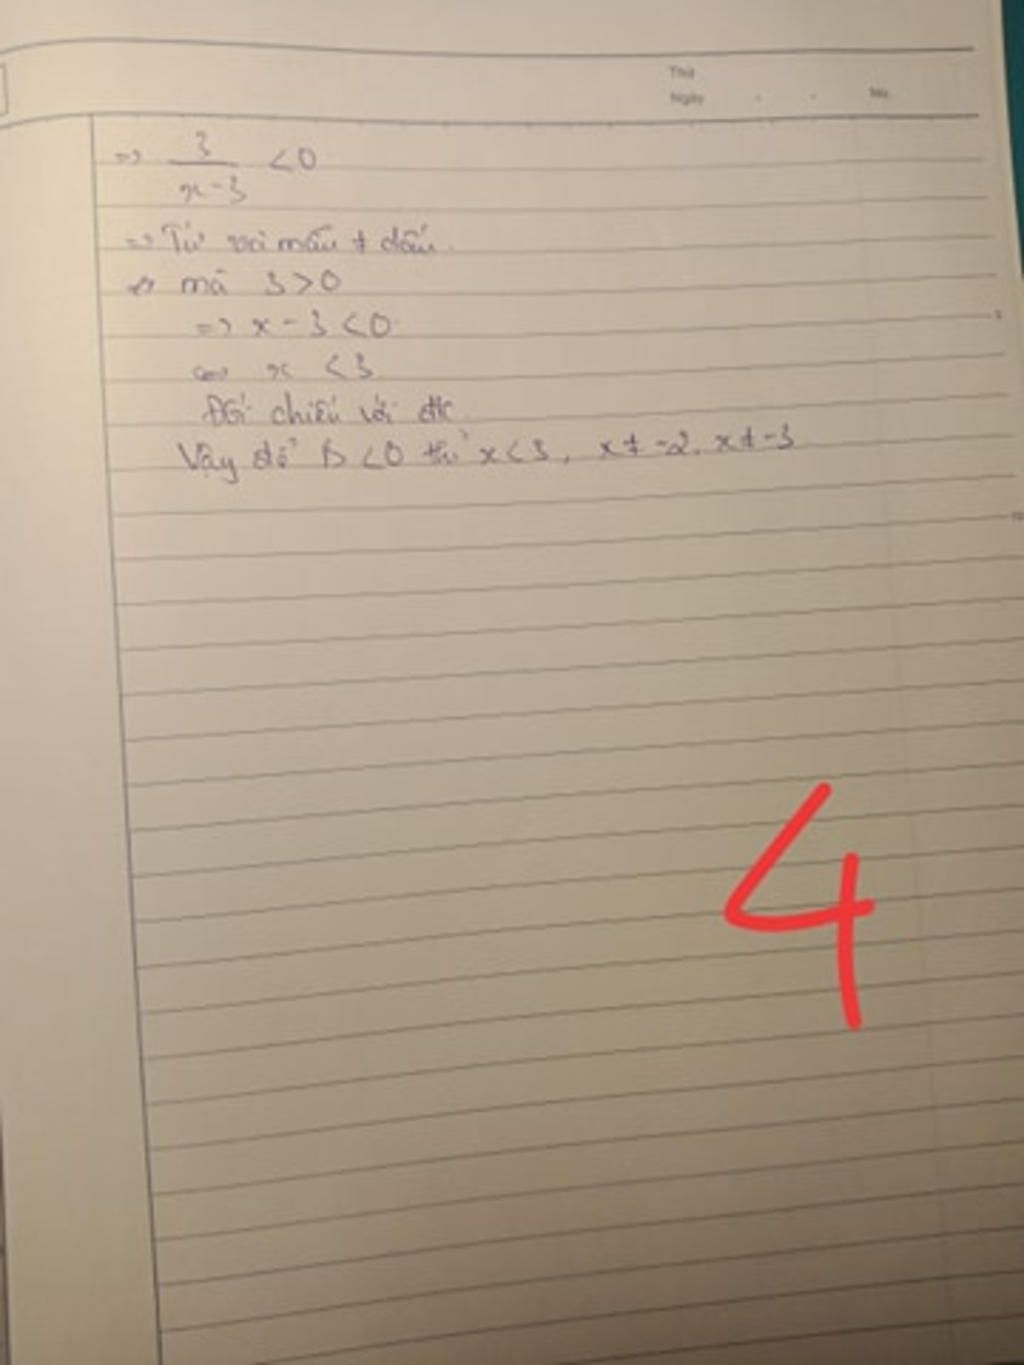 Thứ
Ngày . . No.
=> 3/(x-3) <0
=> Tử với mẫu ≠ dấu.
mà 3>0
=> x-3<0
<=> x <3
Đối chiếu với đk
Vậy để B<0 thì x<3, x≠-2, x≠-3
5
10
4